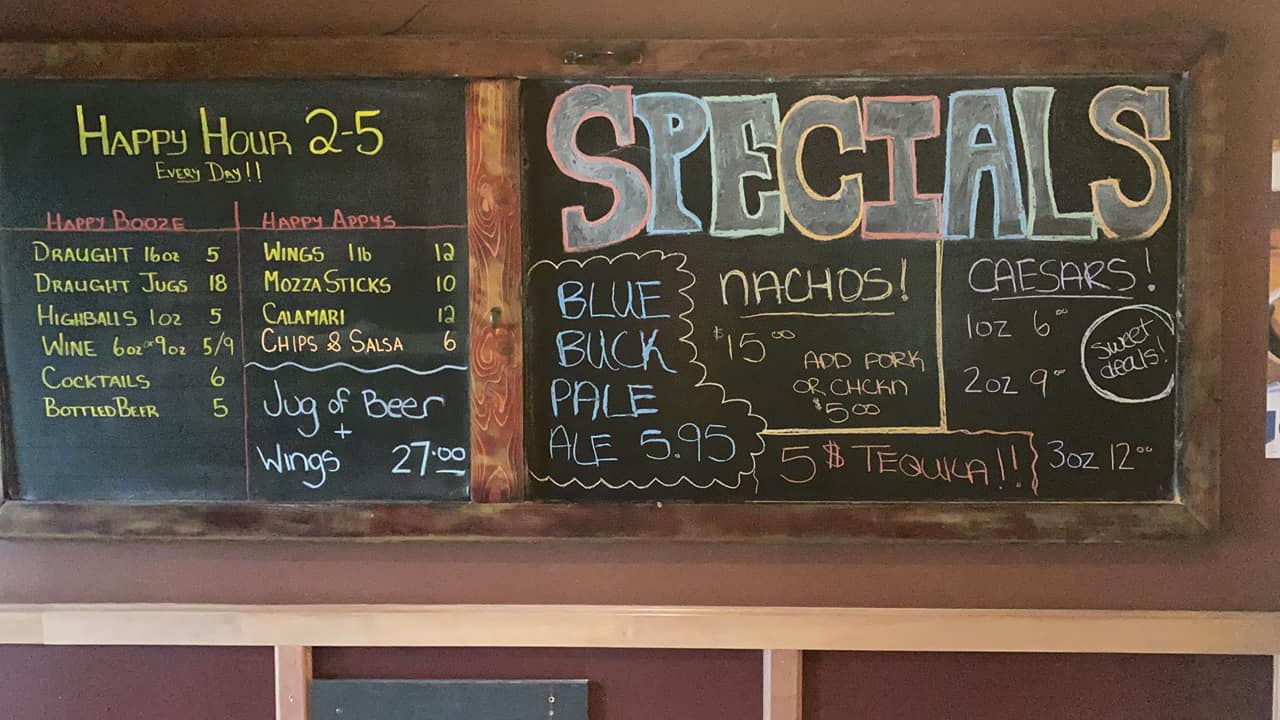 HAPPY HOUR 2-5
EVERY DAY!!
HAPPY BOOZE
DRAUGHT 16oz 5
DRAUGHT JUGS 18
HIGHBALLS 1oz 5
WINE 6oz or 9oz 5/9
COCKTAILS 6
BOTTLED BEER 5
HAPPY APPYS
WINGS 1lb 12
MOZZA STICKS 10
CALAMARI 12
CHIPS & SALSA 6
Jug of Beer
+
Wings 27.00
SPECIALS
BLUE
BUCK
PALE
ALE 5.95
NACHOS!
$15.00
ADD PORK
OR CHCKN
$5.00
CAESARS!
1oz 6.00
2oz 9.-
3oz 12.00
sweet
deals!
5$ TEQUILA!!